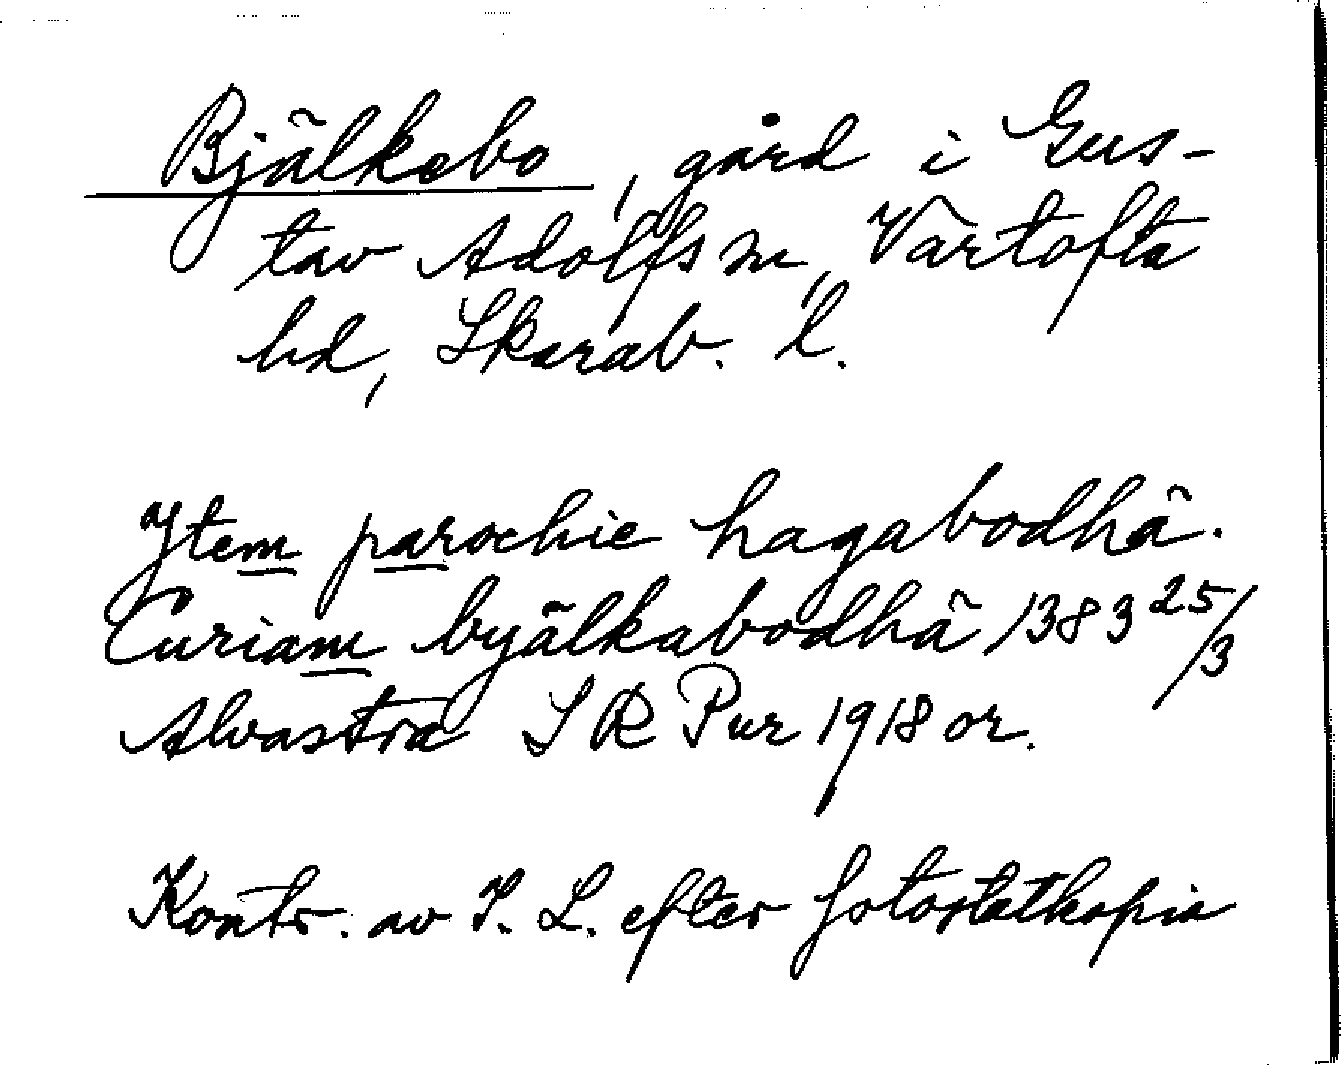 Bjälkebo, gård i Gus-
tav Adolfs sn, Vartofta
hd, Skarab. l.
Jtem parochie hagabodhä.
Curiam byälkabodhä 1383 25/3
Alvastra SR Pur 1918 or.
Kontr. av I. L. efter fotostatkopia